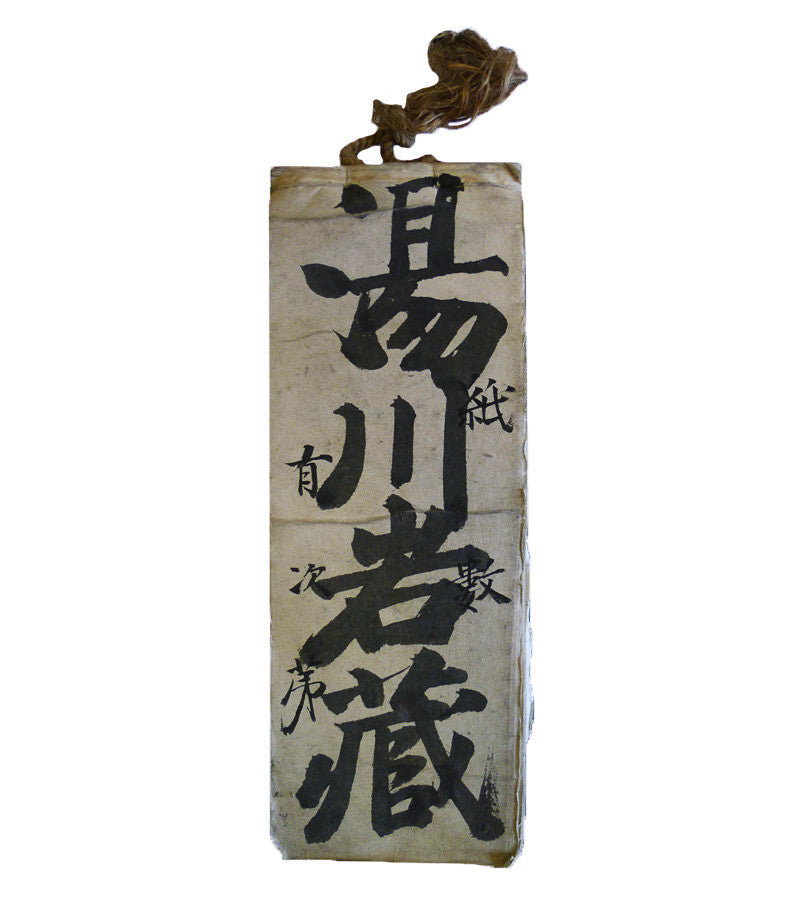 紙數
湯川岩蔵
有次第